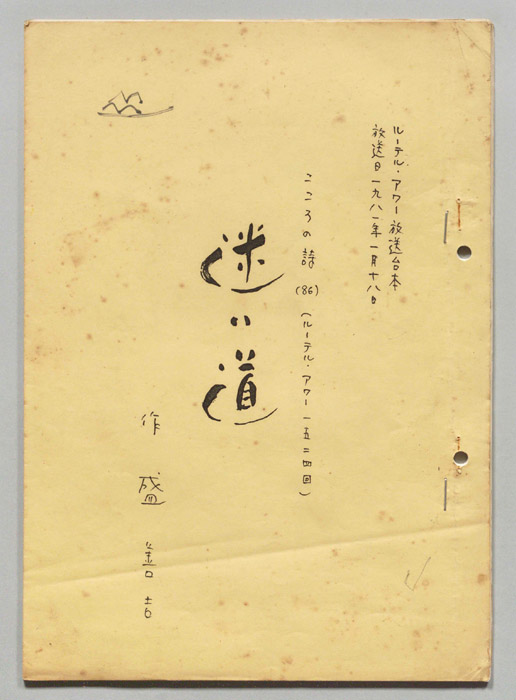 ルーテル・アワー放送台本
放送日一九八一年一月十八日
こころの詩(86)(ルーテル・アワー一五二四回)
迷い道
作 盛善吉